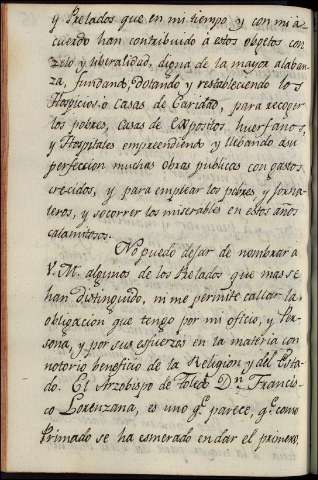 y Prelados que en mi tiempo y con mi a-
cuerdo han contribuido à estos obgetos con
zelo y liberalidad, digna de la mayor alaban-
za, fundando, dotando y restableciendo los
Hospicios ò Casas de Caridad, para recoger
los pobres, Casas de Expositos, huerfanos,
y Hospitales emprehendiendo y llebando à su
perfeccion muchas obras publicas con gastos
crecidos, y para emplear los pobres y jorna-
leros, y socorrer los miserables en estos años
calamitosos.
No puedo dejar de nombrar a
V. M. algunos de los Prelados que mas se
han distinguido, ni me permite callar la
obligacion que tengo por mi oficio, y Per-
sona, y por sus esfuerzos en la materia con
notorio beneficio de la Religion y del Esta-
do. El Arzobispo de Toledo Dn. Francis-
co Lorenzana, es uno qe. parece, qe. como
Primado se ha esmerado en dar el primero,